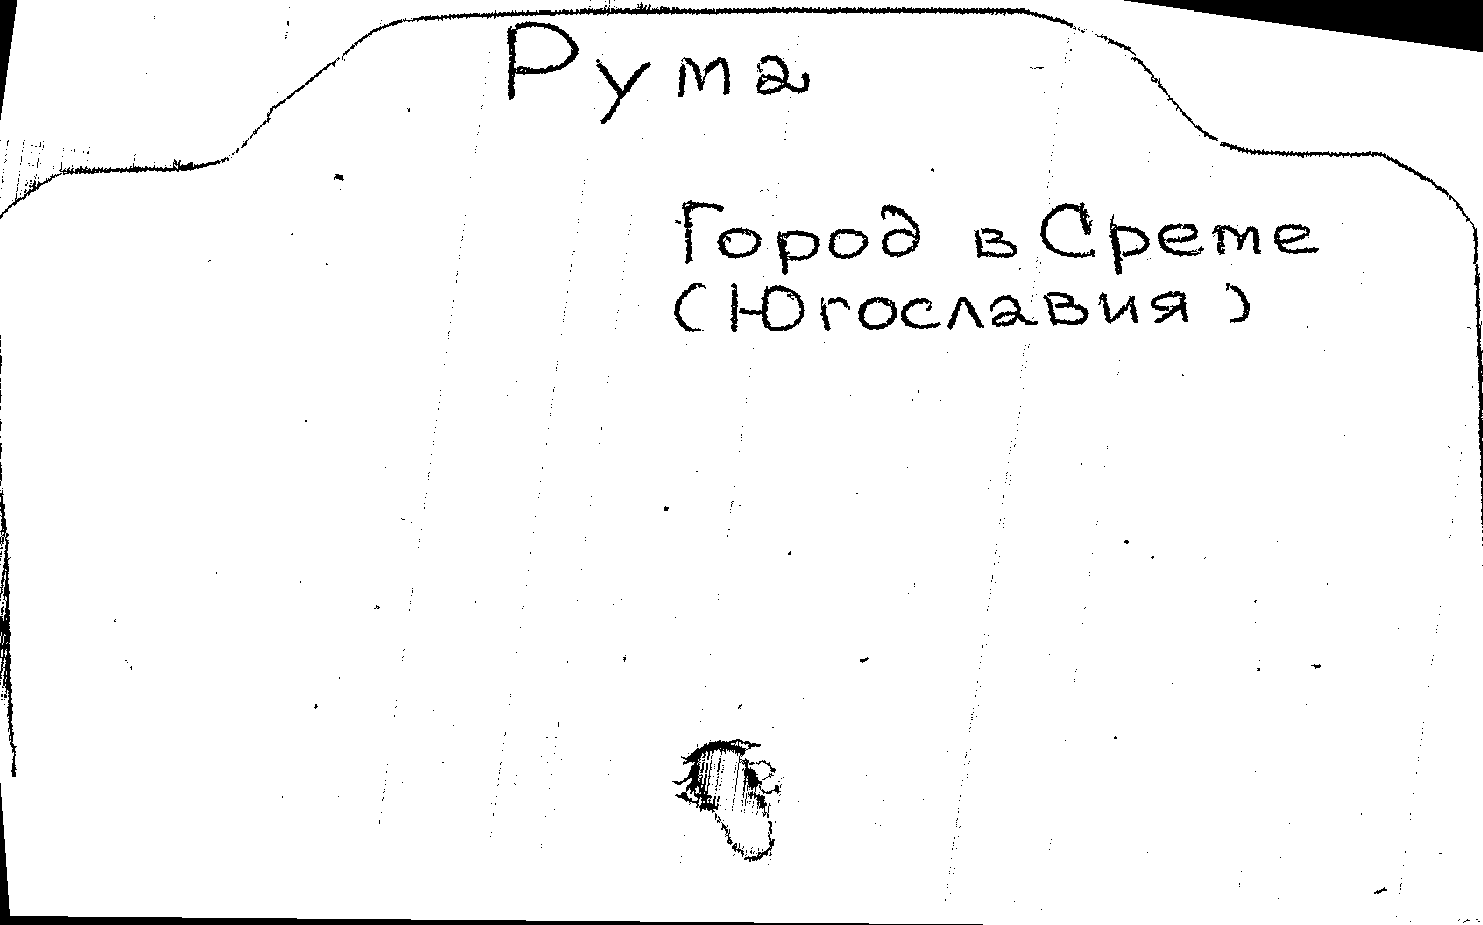 Рума
Город в Среме
(Югославия)